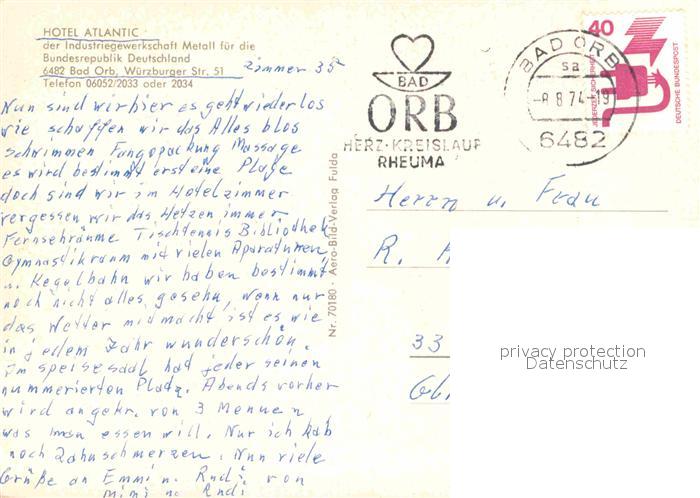 HOTEL ATLANTIC
der Industriegewerkschaft Metall für die
Bundesrepublik Deutschland
6482 Bad Orb, Würzburger Str. 51
Telefon 06052/2033 oder 2034
Zimmer 35
Nun sind wir hier es geht wieder los
wie schaffen wir das Alles blos
schwimmen Fangopackung Massage
es wird bestimmt erst eine Plage
doch sind wir im Hotelzimmer
vergessen wir das Hetzen immer
Fernsehräume Tischtennis Bibliothek
Gymnastikraum mit vielen Aparaturen
u. Kegelbahn wir haben bestimmt
noch nicht alles gesehn, wenn nur
das Wetter mitmacht ist es wie
in jedem Jahr wunderschön.
Im speisesaal hat jeder seinen
nummerierten Platz. Abends vorher
wird angekr. von 3 Menue n
was man essen will. Nur ich hab
noch Zahnschmerzen. Nun viele
Grüße an Emmi u. Rudi von
Mimi u. Rudi
Nr. 70180 · Aero-Bild-Verlag Fulda
BAD
ORB
HERZ-KREISLAUF
RHEUMA
BAD ORB
sa
-8.8.74-19
6482
40
JEDERZEIT SICHERHEIT
DEUTSCHE BUNDESPOST
Herrn u. Frau
R.
33
privacy protection
Datenschutz